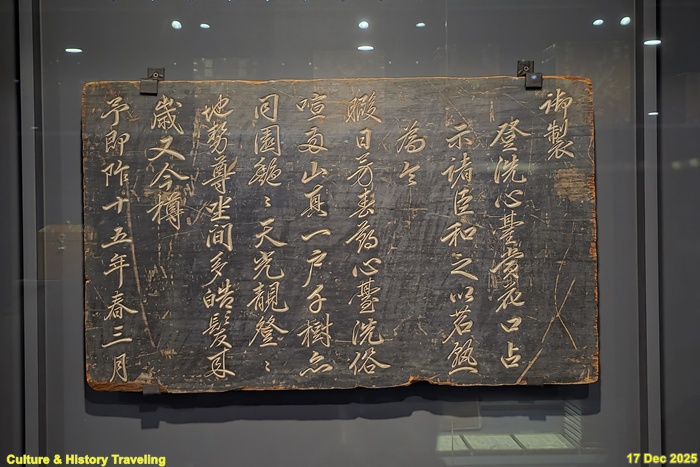 御製
登洗心臺賞花口占
示諸臣和之以茗熟
為令
暇日芳春心臺洗俗
喧兩山真一戶千樹亦
同園艷〻天光靚登〻
地勢尊坐間多皓髮耳
歲又今樽
予即阼十五年春三月
Culture & History Traveling
17 Dec 2025